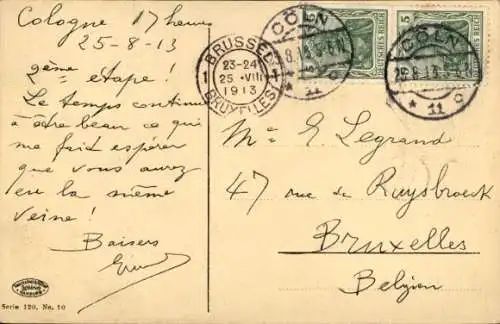 Cologne 17 heures
25-8-13
2ème étape!
Le temps continue
à être beau ce qui
me fait espérer
que vous aurez
eu la même
veine!
Baisers
Serie 120, No. 10
BRUSSEL
1 23-24 1
25 VIII
1913
BRUXELLES
CÖLN
* 11 c
5
DEUTSCHES REICH
CÖLN
25.8.13
* 11 c
Me E Legrand
47 rue de Ruysbroeck
Bruxelles
Belgien